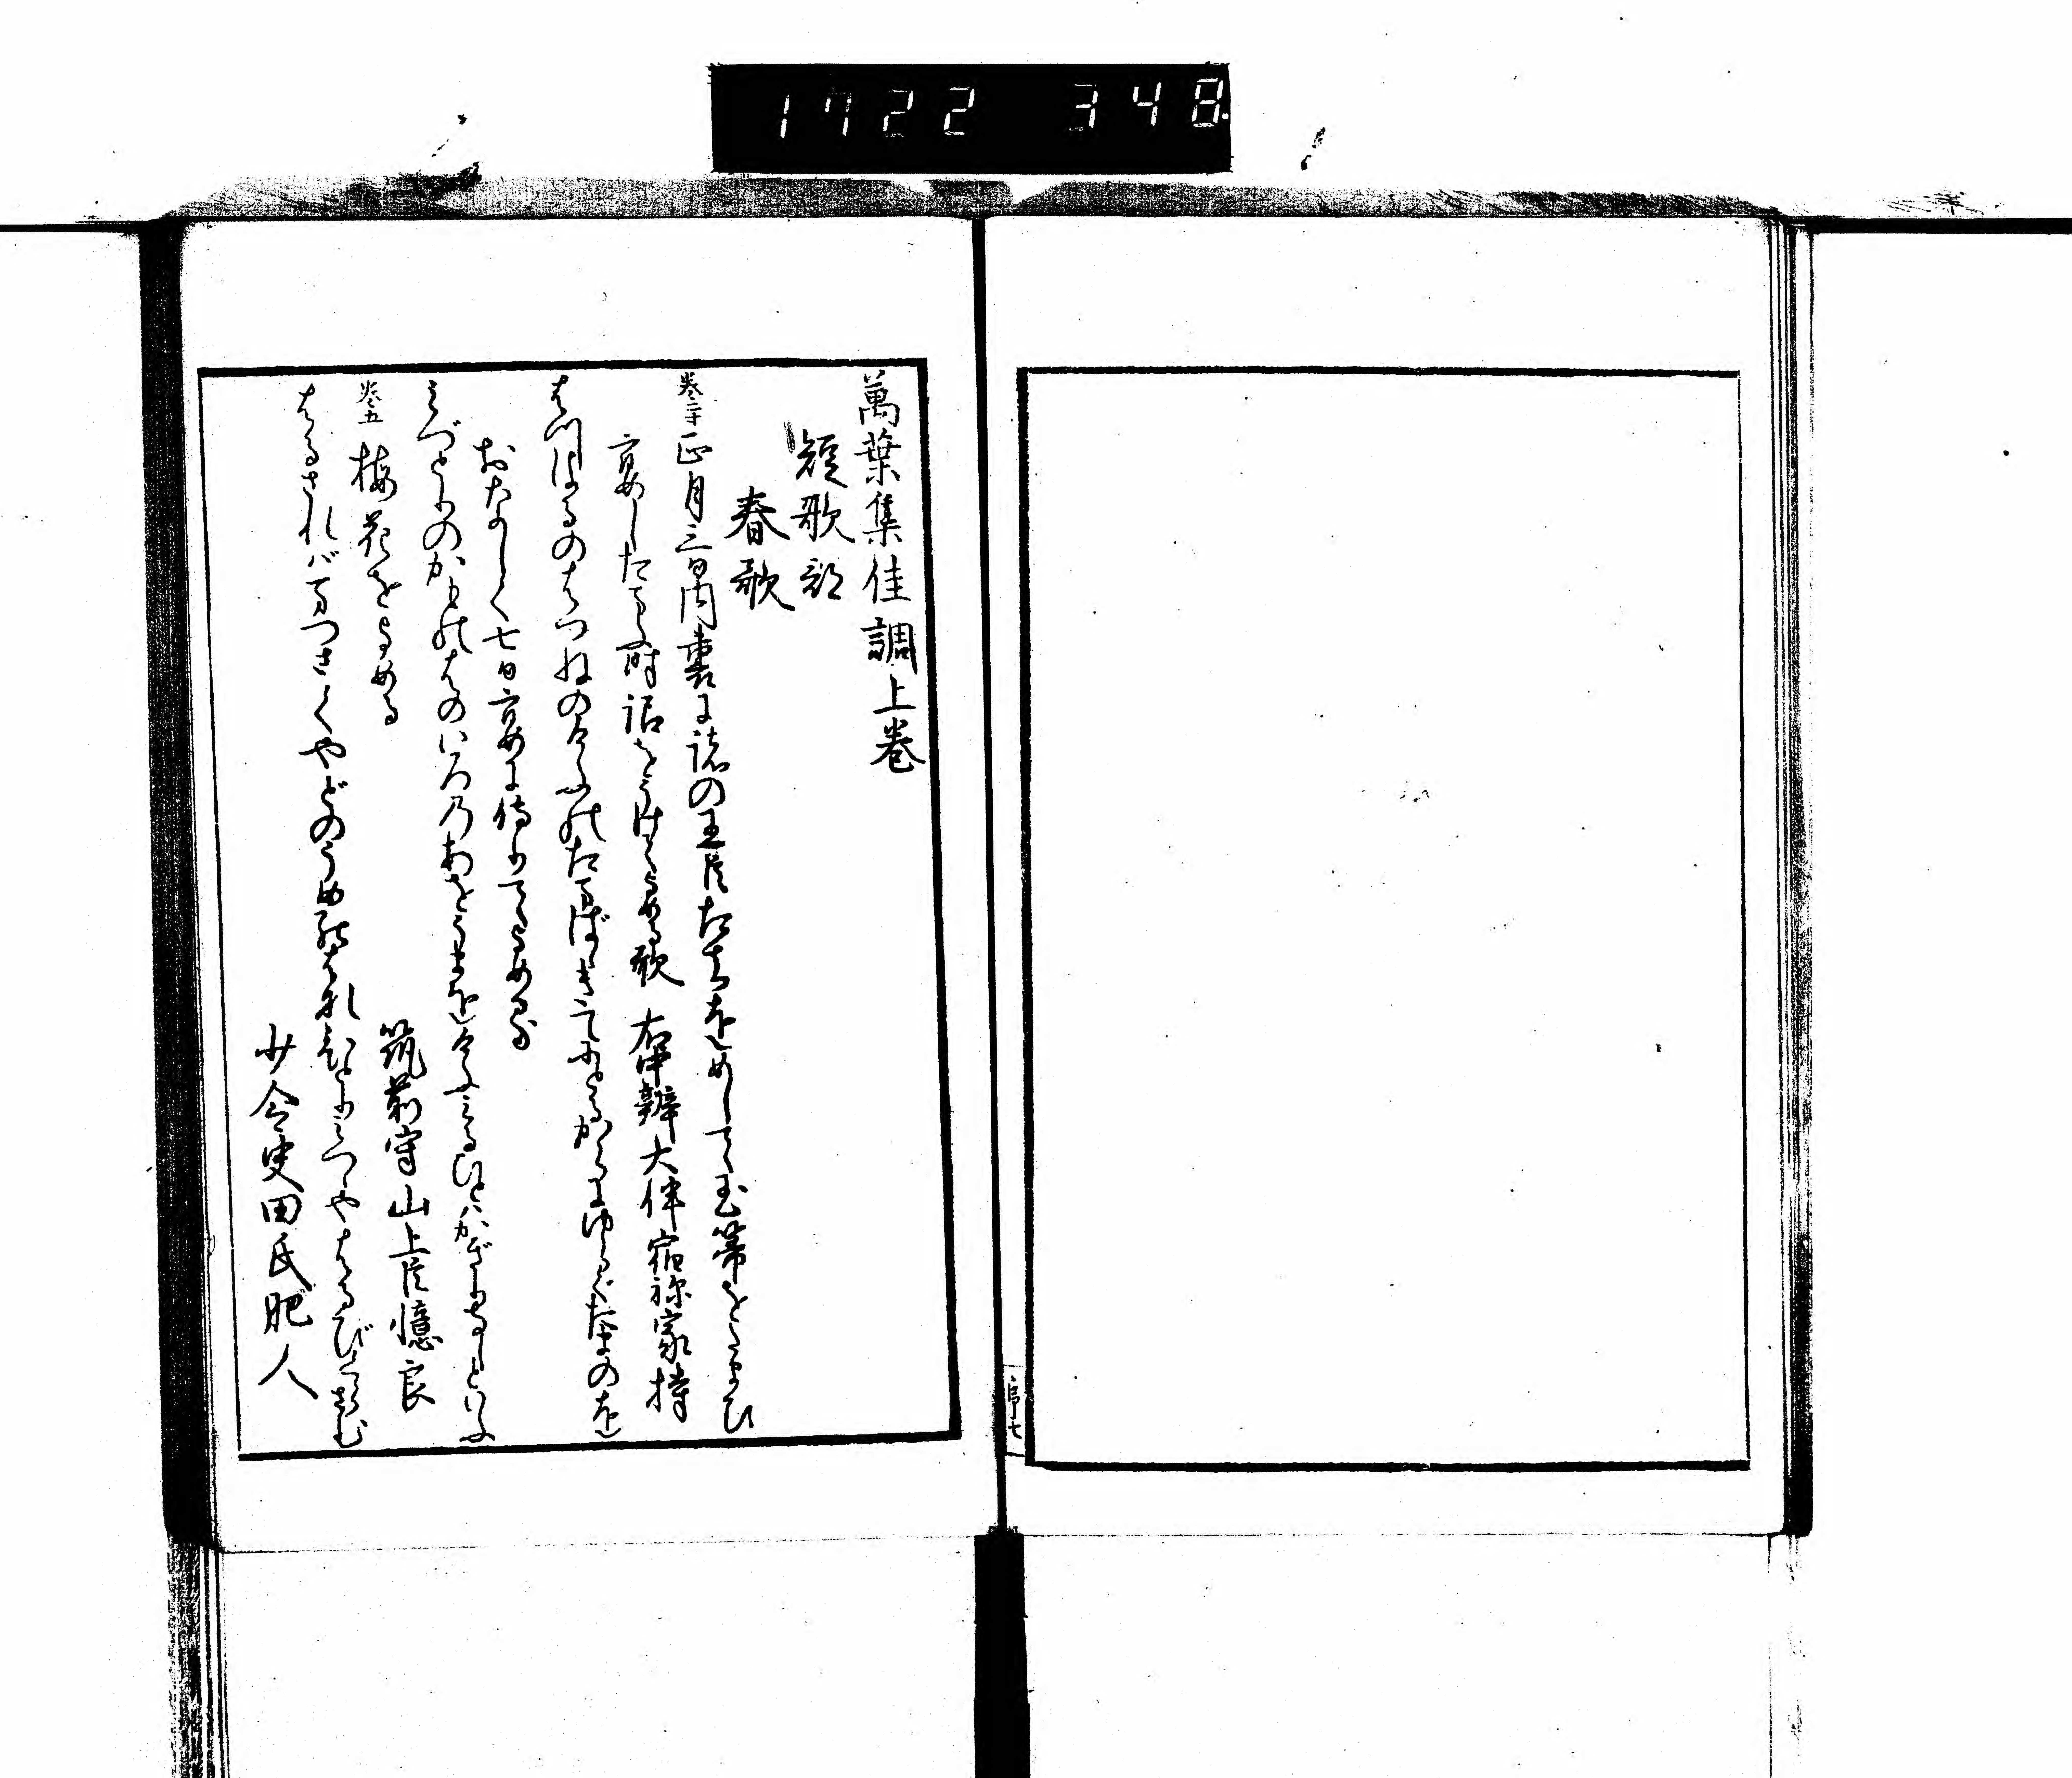 1722 348.
萬葉集佳調上巻
短歌部
春歌
巻二十 正月三日内裏に諸の王臣たちをめして玉箒をたまひ
宴したまふ時詔をうけてよめる歌 右中辨大伴宿祢家持
はつはるのはつねのけふのたまばはきてにとるからにゆらぐたまのを
おなしく七日宴に侍りてよめる
みづとりのかものはのいろのあをうまをけふみるひとはかぎりなしといふ
巻五 梅花をよめる
筑前守山上臣憶良
はるさればまづさくやどのうめのはなひとりみつつやはるびくらさむ
少令史田氏肥人
序七